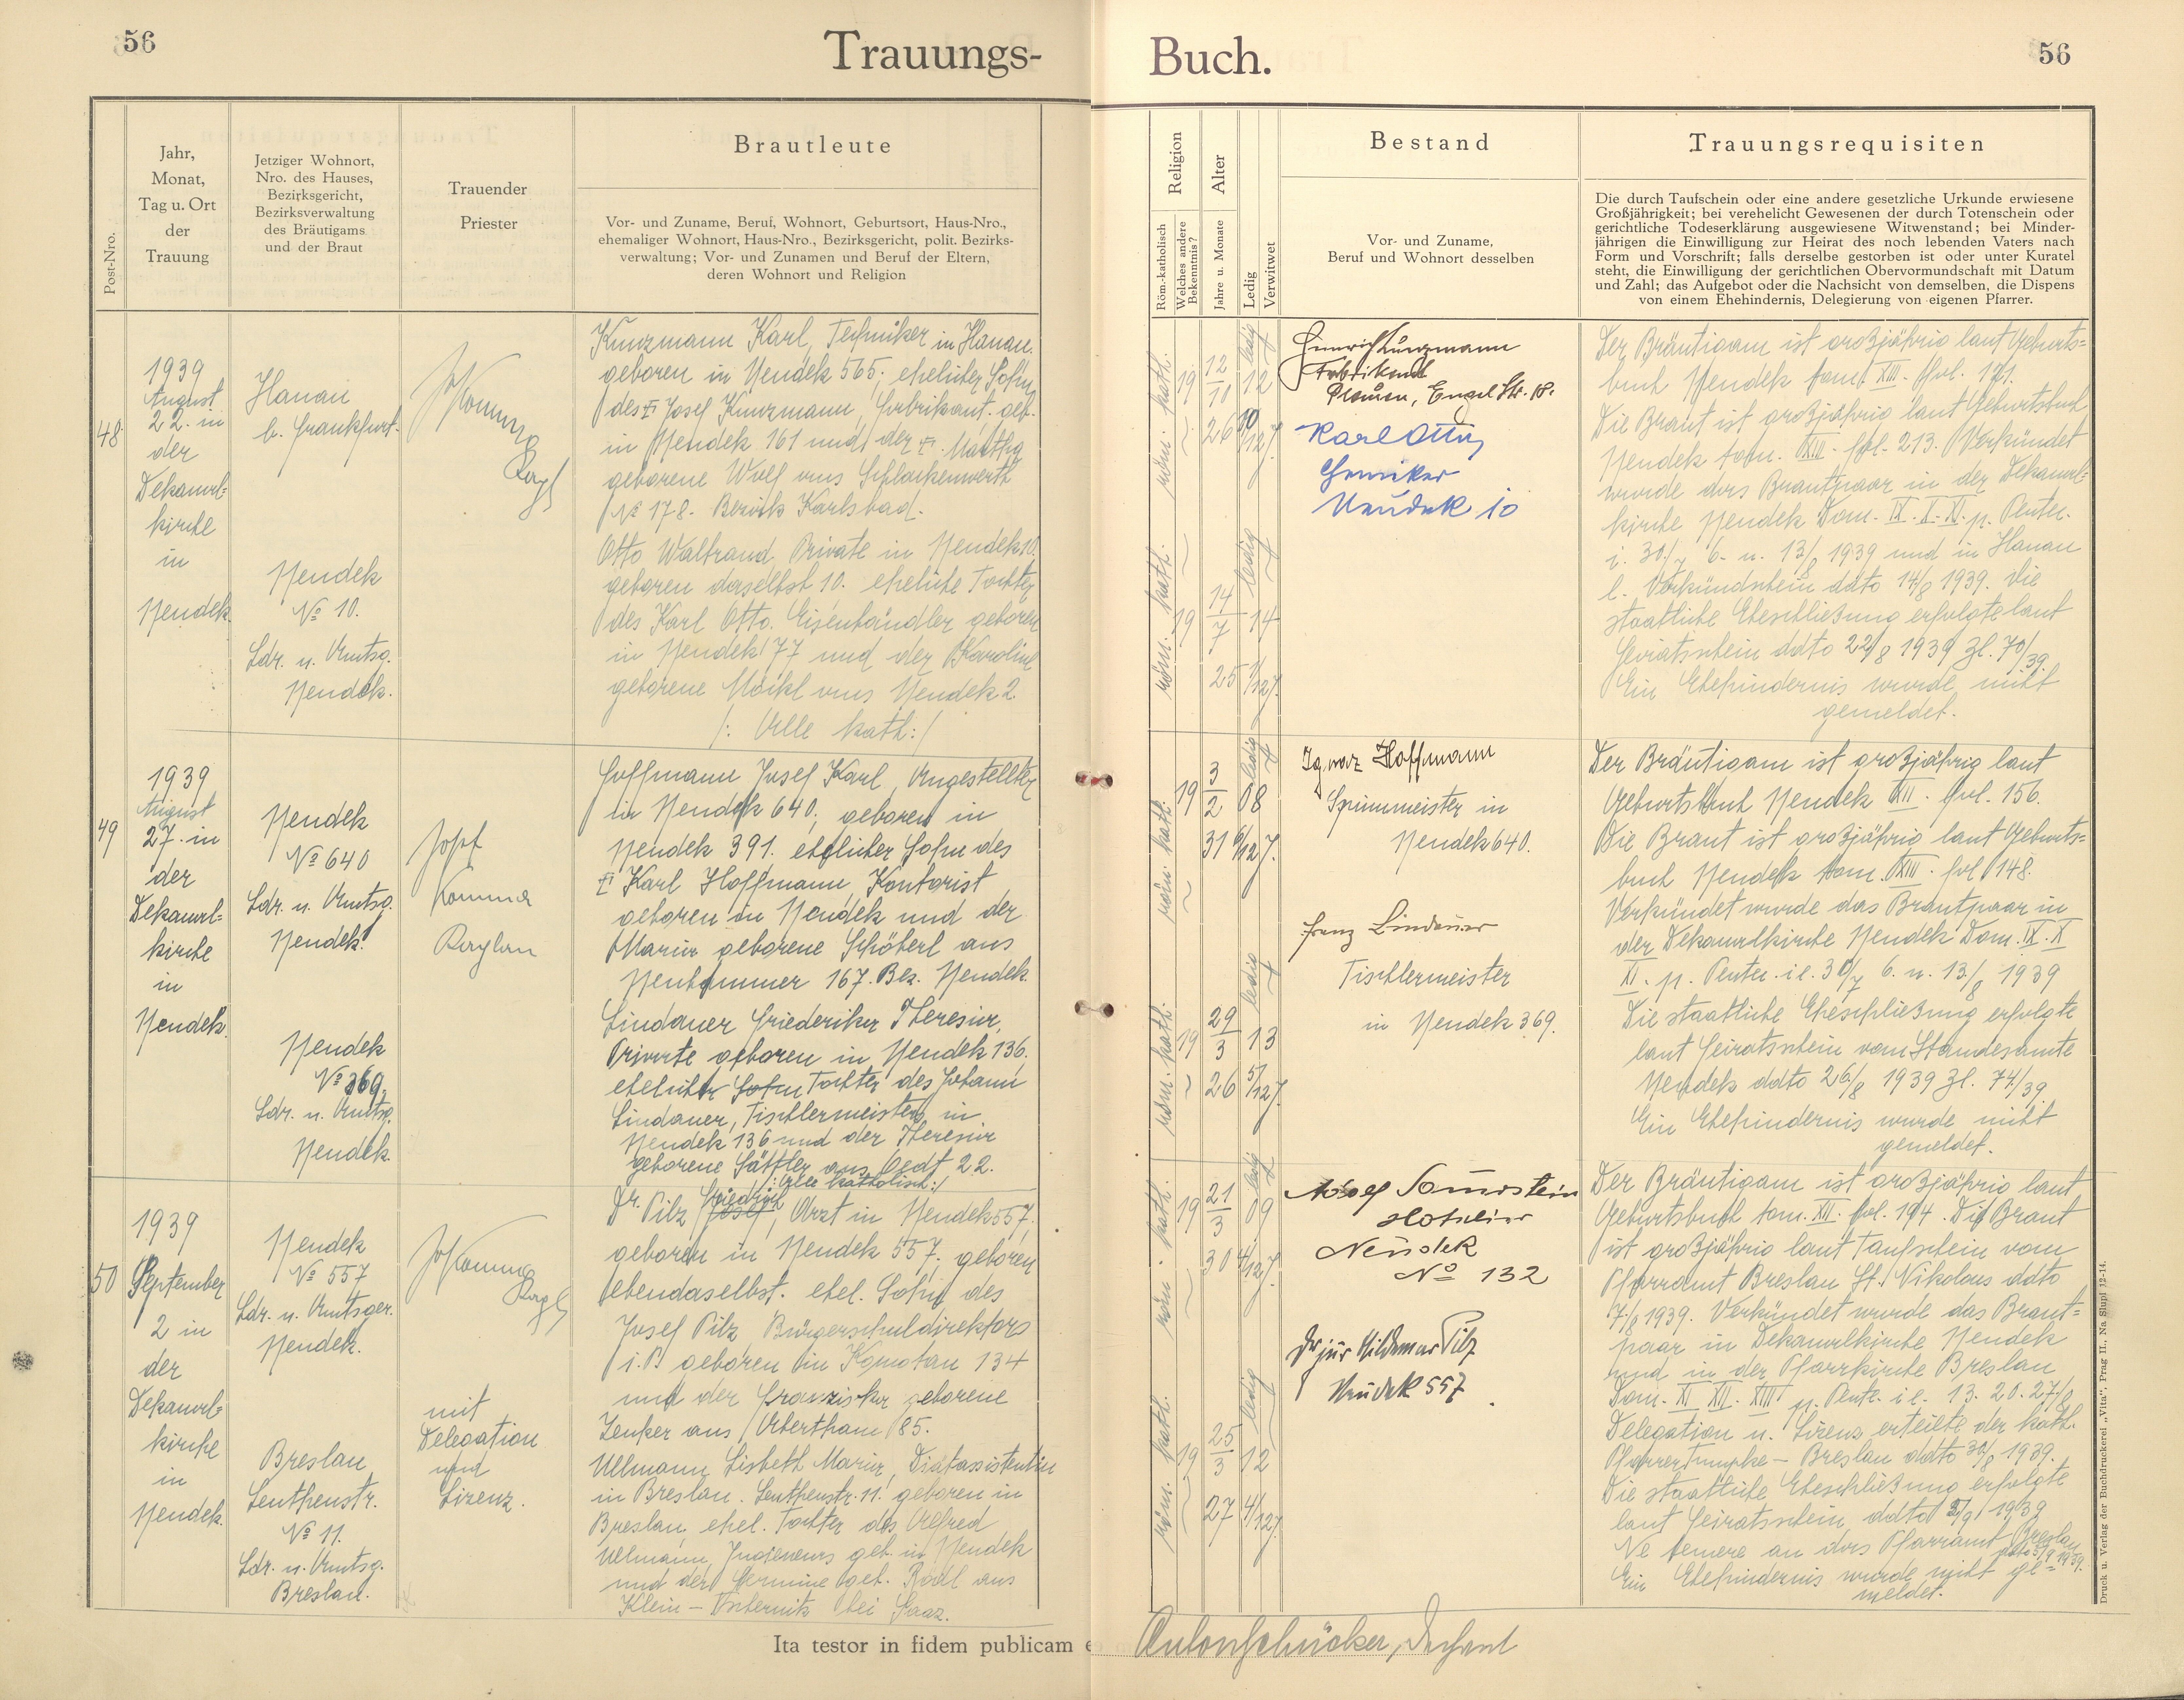 56
Trauungs-
Buch.
56
Post-Nro.
Jahr,
Monat,
Tag u. Ort
der
Trauung
Jetziger Wohnort,
Nro. des Hauses,
Bezirksgericht,
Bezirksverwaltung
des Bräutigams
und der Braut
Trauender
Priester
Brautleute
Vor- und Zuname, Beruf, Wohnort, Geburtsort, Haus-Nro.,
ehemaliger Wohnort, Haus-Nro., Bezirksgericht, polit. Bezirks-
verwaltung; Vor- und Zunamen und Beruf der Eltern,
deren Wohnort und Religion
Religion
Röm.-katholisch
Welches andere
Bekenntnis?
Alter
Jahre u. Monate
Ledig
Verwitwet
Bestand
Vor- und Zuname,
Beruf und Wohnort desselben
Trauungsrequisiten
Die durch Taufschein oder eine andere gesetzliche Urkunde erwiesene
Großjährigkeit; bei verehelicht Gewesenen der durch Totenschein oder
gerichtliche Todeserklärung ausgewiesene Witwenstand; bei Minder-
jährigen die Einwilligung zur Heirat des noch lebenden Vaters nach
Form und Vorschrift; falls derselbe gestorben ist oder unter Kuratel
steht, die Einwilligung der gerichtlichen Obervormundschaft mit Datum
und Zahl; das Aufgebot oder die Nachsicht von demselben, die Dispens
von einem Ehehindernis, Delegierung von eigenen Pfarrer.
48
1939
August
22. in
der
Dekanal=
kirche
in
Neudek
Hanau
b. Frankfurt.
Neudek
№ 10.
Ldr. u. Amtsg.
Neudek.
Jos Komma
Kunzmann Karl, Techniker in Hanau.
geboren in Neudek 565; ehelicher Sohn
des † Josef Kunzmann, Fabrikant. geb.
in Neudek 161 und der †
geborene Wolf aus Schlackenwerth
№ 178. Bezirk Karlsbad.
Otto Waltraud Private in Neudek 10.
geboren daselbst 10. eheliche Tochter
des Karl Otto. Eisenhändler geboren
in Neudek 77 und der Karoline
geborene Moikl aus Neudek 2
/: Alle kath:/
röm. kath.
19 12/10 12
26 10/12 J.
ledig
röm. kath.
19 14/7 14
25 1/12 J.
ledig
Heinrich Kunzmann
Fabrikant
Plauen, Engel Str. 18.
Karl Otto
Chemiker
Neudek 10
Der Bräutigam ist großjährig laut Geburts=
buch Neudek tom. XIII. fol. 191.
Die Braut ist großjährig laut Geburtsbuch
Neudek tom. XIII. fol. 213. Verkündet
wurde das Brautpaar in der Dekanal=
kirche Neudek Dom. IX. X. XI. p. Penter.
i. 30/7 6. u. 13/8 1939 und in Hanau
l. Verkündschein ddto 14/8 1939. Die
staatliche Eheschließung erfolgte laut
Heiratsschein ddto 22/8 1939 Zl. 70/39.
Ein Ehehindernis wurde nicht
gemeldet.
49
1939
August
27. in
der
Dekanal=
kirche
in
Neudek.
Neudek
№ 640
Ldr. u. Amtsg.
Neudek.
Neudek
№ 369.
Ldr. u. Amtsg.
Neudek
Josef
Komma
Kaplan
Hoffmann Josef Karl, Angestellter
in Neudek 640, geboren in
Neudek 391. ehelicher Sohn des
† Karl Hoffmann, Kontorist
geboren in Neudek und der
Maria geborene Schöterl aus
Neuhammer 167. Bez. Neudek.
Lindauer Friederika Theresia,
Private geboren in Neudek 136.
ehelicher Sohn Tochter des Johann
Lindauer, Tischlermeisters in
Neudek 136 und der Theresia
geborene Sättler aus Oedt 22.
/: Alle katholisch:/
röm. kath.
19 3/2 08
31 6/12 J.
ledig
röm. kath.
19 29/3 13
26 5/12 J.
ledig
Ignaz Hoffmann
Spinnmeister in
Neudek 640.
Franz Lindauer
Tischlermeister
in Neudek 369.
Der Bräutigam ist großjährig laut
Geburtsbuch Neudek XII. fol. 156.
Die Braut ist großjährig laut Geburts=
buch Neudek tom. XIII. fol 148.
Verkündet wurde das Brautpaar in
der Dekanalkirche Neudek Dom. IX. X
XI. p. Penter. i.e. 30/7 6. u. 13/8 1939
Die staatliche Eheschließung erfolgte
laut Heiratsschein vom Standesamte
Neudek ddto 26/8 1939 Zl. 74/39
Ein Ehehindernis wurde nicht
gemeldet.
50
1939
September
2 in
der
Dekanal=
kirche
in
Neudek.
Neudek
№ 557
Ldr. u. Amtsger.
Neudek.
Breslau
Leuthenstr.
№ 11.
Ldr. u. Amtsg.
Breslau.
Jos Komma
mit
Delegation
und
Lizenz.
Dr. Pilz Friedrich Josef, Arzt in Neudek 557.
geboren in Neudek 557; geboren
ebendaselbst. ehel. Sohn des
Josef Pilz Bürgerschuldirektors
i.P. geboren in Komotau 134
und der Franziska geborene
Zenker aus Abertham 85.
Ullmann Lisbeth Maria, Diätassistentin
in Breslau. Leuthenstr. 11. geboren in
Breslau ehel. Tochter des Alfred
Ullmann, Ingenieurs geb. in Neudek
und der Hermine geb. Rödl aus
Klein- bei Saaz.
röm. kath.
19 21/3 09
30 4/12 J.
ledig
röm. kath.
19 25/3 12
27 4/12 J.
ledig
Hotelier
Neudek
No 132
Dr jur Hildemar Pilz
Neudek 557
Der Bräutigam ist großjährig laut
Geburtsbuch tom. XII. fol. 194. Die Braut
ist großjährig laut Taufschein vom
Pfarramt Breslau St. Nikolaus ddto
7/8 1939. Verkündet wurde das Braut=
paar in Dekanalkirche Neudek
und in der Pfarrkirche Breslau
Dom. XI XII. XIII. p. Pente. i.e. 13. 20. 27/8
Delegation u. Lizenz erteilte der kath.
Pfarrer - Breslau ddto 30/8 1939.
Die staatliche Eheschließung erfolgte
laut Heiratsschein ddto 2/9 1939
Ne temere an das Pfarramt Breslau
ddto 3/9 1939.
Ein Ehehindernis wurde nicht ge=
meldet.
Ita testor in fidem publicam
Anton Schücker, Dechant
Druck u. Verlag der Buchdruckerei „Vita“, Prag II., Na Slupi 12-14.